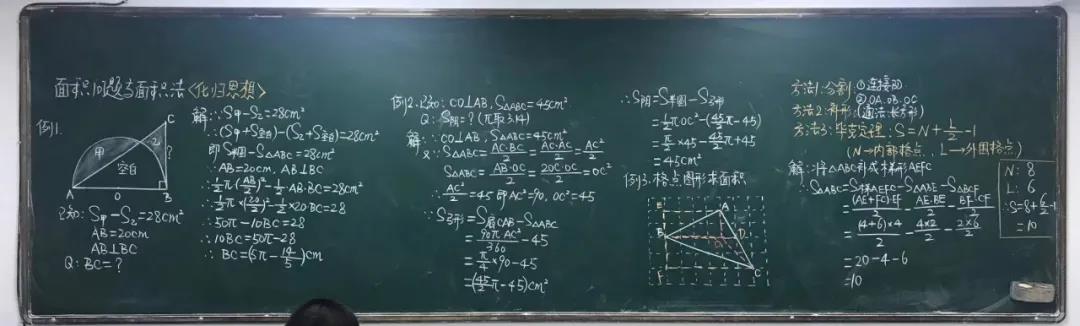 面积问题与面积法<化归思想>
例1.
甲
空白
乙
C
?
A
O
B
已知: S甲-S乙=28cm²
AB=20cm
AB⊥BC
Q: BC=?
解:∵S甲-S乙=28cm²
∴(S甲+S空白)-(S乙+S空白)=28cm²
即 S半圆-S△ABC=28cm²
∵AB=20cm, AB⊥BC
∴½π(AB/2)²-½·AB·BC=28cm²
∴½π(20/2)²-½×20·BC=28
∴50π-10BC=28
∴10BC=50π-28
∴BC=(5π-14/5)cm
例2.已知: CO⊥AB, S△ABC=45cm²
Q: S阴=?(π取3.14)
解:∵CO⊥AB, S△ABC=45cm²
又∵S△ABC=AC·BC/2=AC·AC/2=AC²/2
S△ABC=AB·OC/2=2OC·OC/2=OC²
∴AC²/2=45 即AC²=90, OC²=45
∵S弓形=S扇CAB-S△ABC
=90πAC²/360-45
=π/4×90-45
=(45/2π-45)cm²
∴S阴=S半圆-S弓形
=½πOC²-(45/2π-45)
=π/2×45-45/2π+45
=45cm²
例3.格点图形求面积
E
A
B
D
O
F
C
方法1:分割 ①连接BD
②OA.OB.OC
方法2:补形:(通法:长方形)
方法3:毕克定理: S=N+L/2-1
(N→内部格点, L→外围格点)
解:将△ABC补成梯形AEFC
∴S△ABC=S梯AEFC-S△ABE-S△BCF
=(AE+FC)·EF/2-AE·BE/2-BF·CF/2
=(4+6)×4/2-4×2/2-2×6/2
=20-4-6
=10
N: 8
L: 6
∴S=8+6/2-1
=10